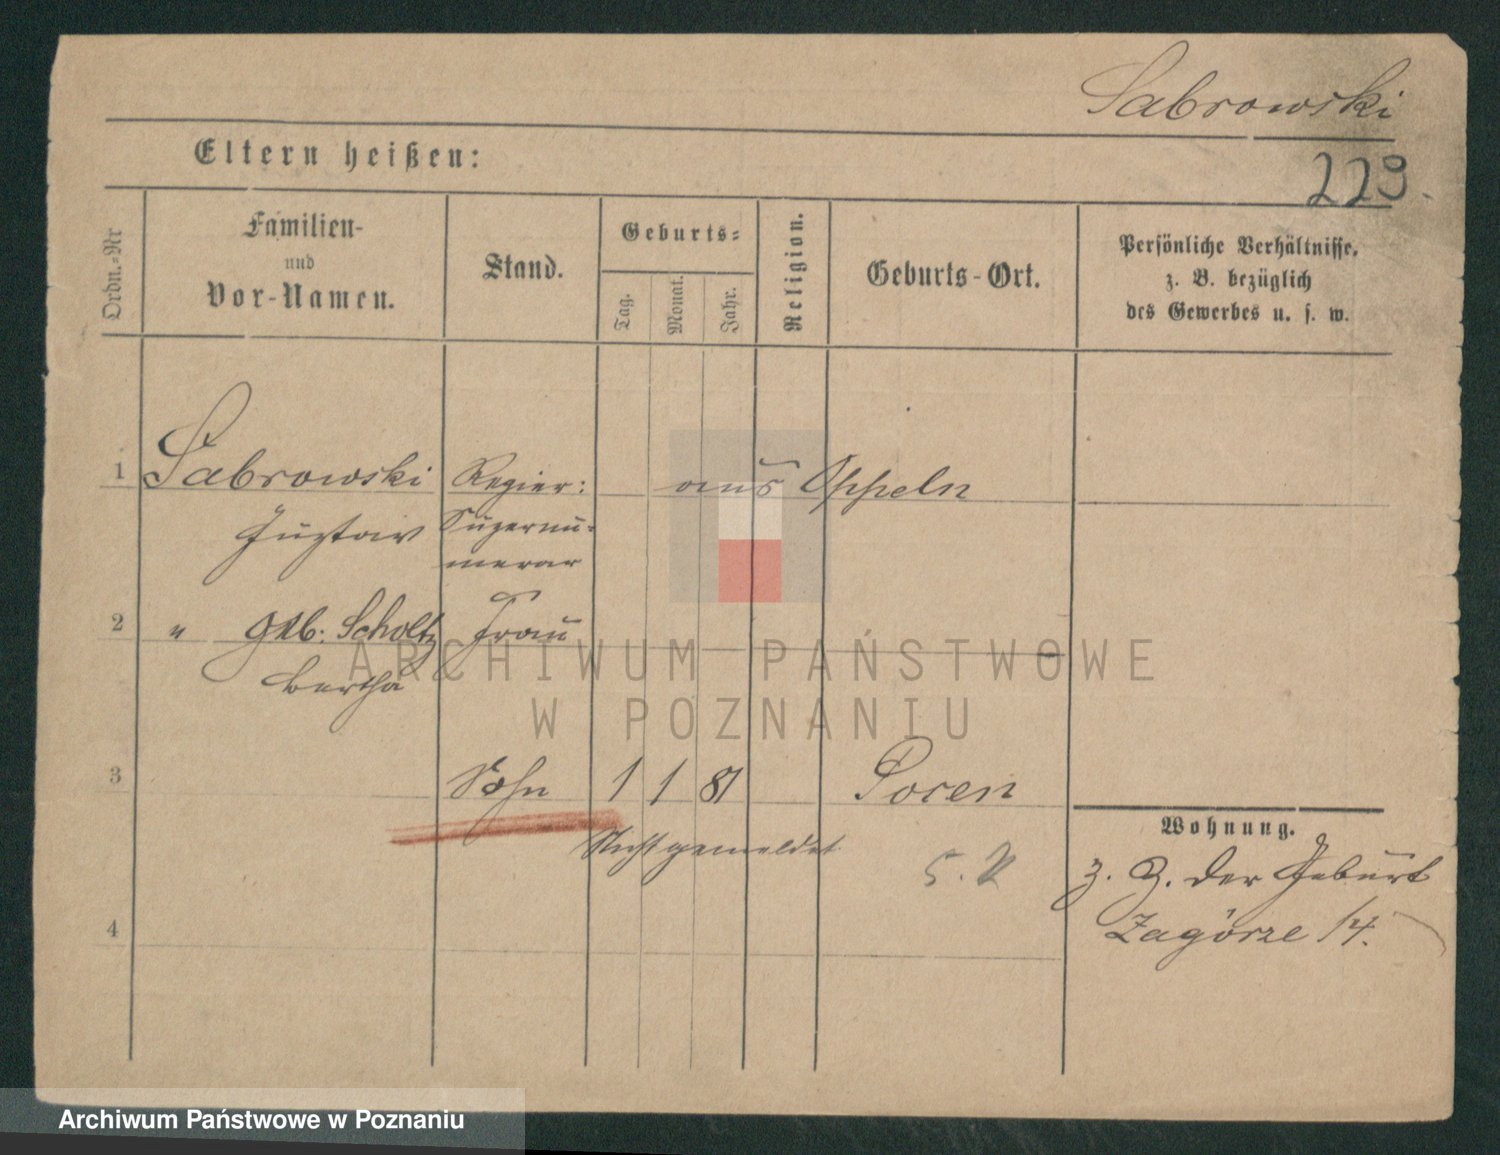 Sabrowski
Eltern heißen:
229.
Ordn.-Nr
Familien-
und
Vor-Namen.
Stand.
Geburts-
Tag.
Monat.
Jahr.
Religion.
Geburts-Ort.
Persönliche Verhältnisse,
z. B. bezüglich
des Gewerbes u. s. w.
1 Sabrowski Regier: aus Oppeln
Gustav Supernu-
merar
2 " geb: Scholtz Frau
Bertha
3 Sohn 1 1 81 Posen
Nicht gemeldet
Wohnung.
z. Z. der Geburt
Zagórze 14.
4
ARCHIWUM PAŃSTWOWE
W POZNANIU
Archiwum Państwowe w Poznaniu